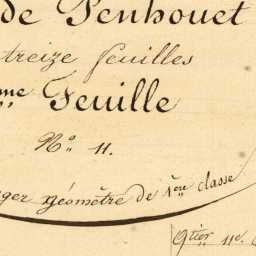 de Penhouet
treize feuilles
me Feuille
No. 11.
ger géomètre de 1ère classe
Qtier 11e.